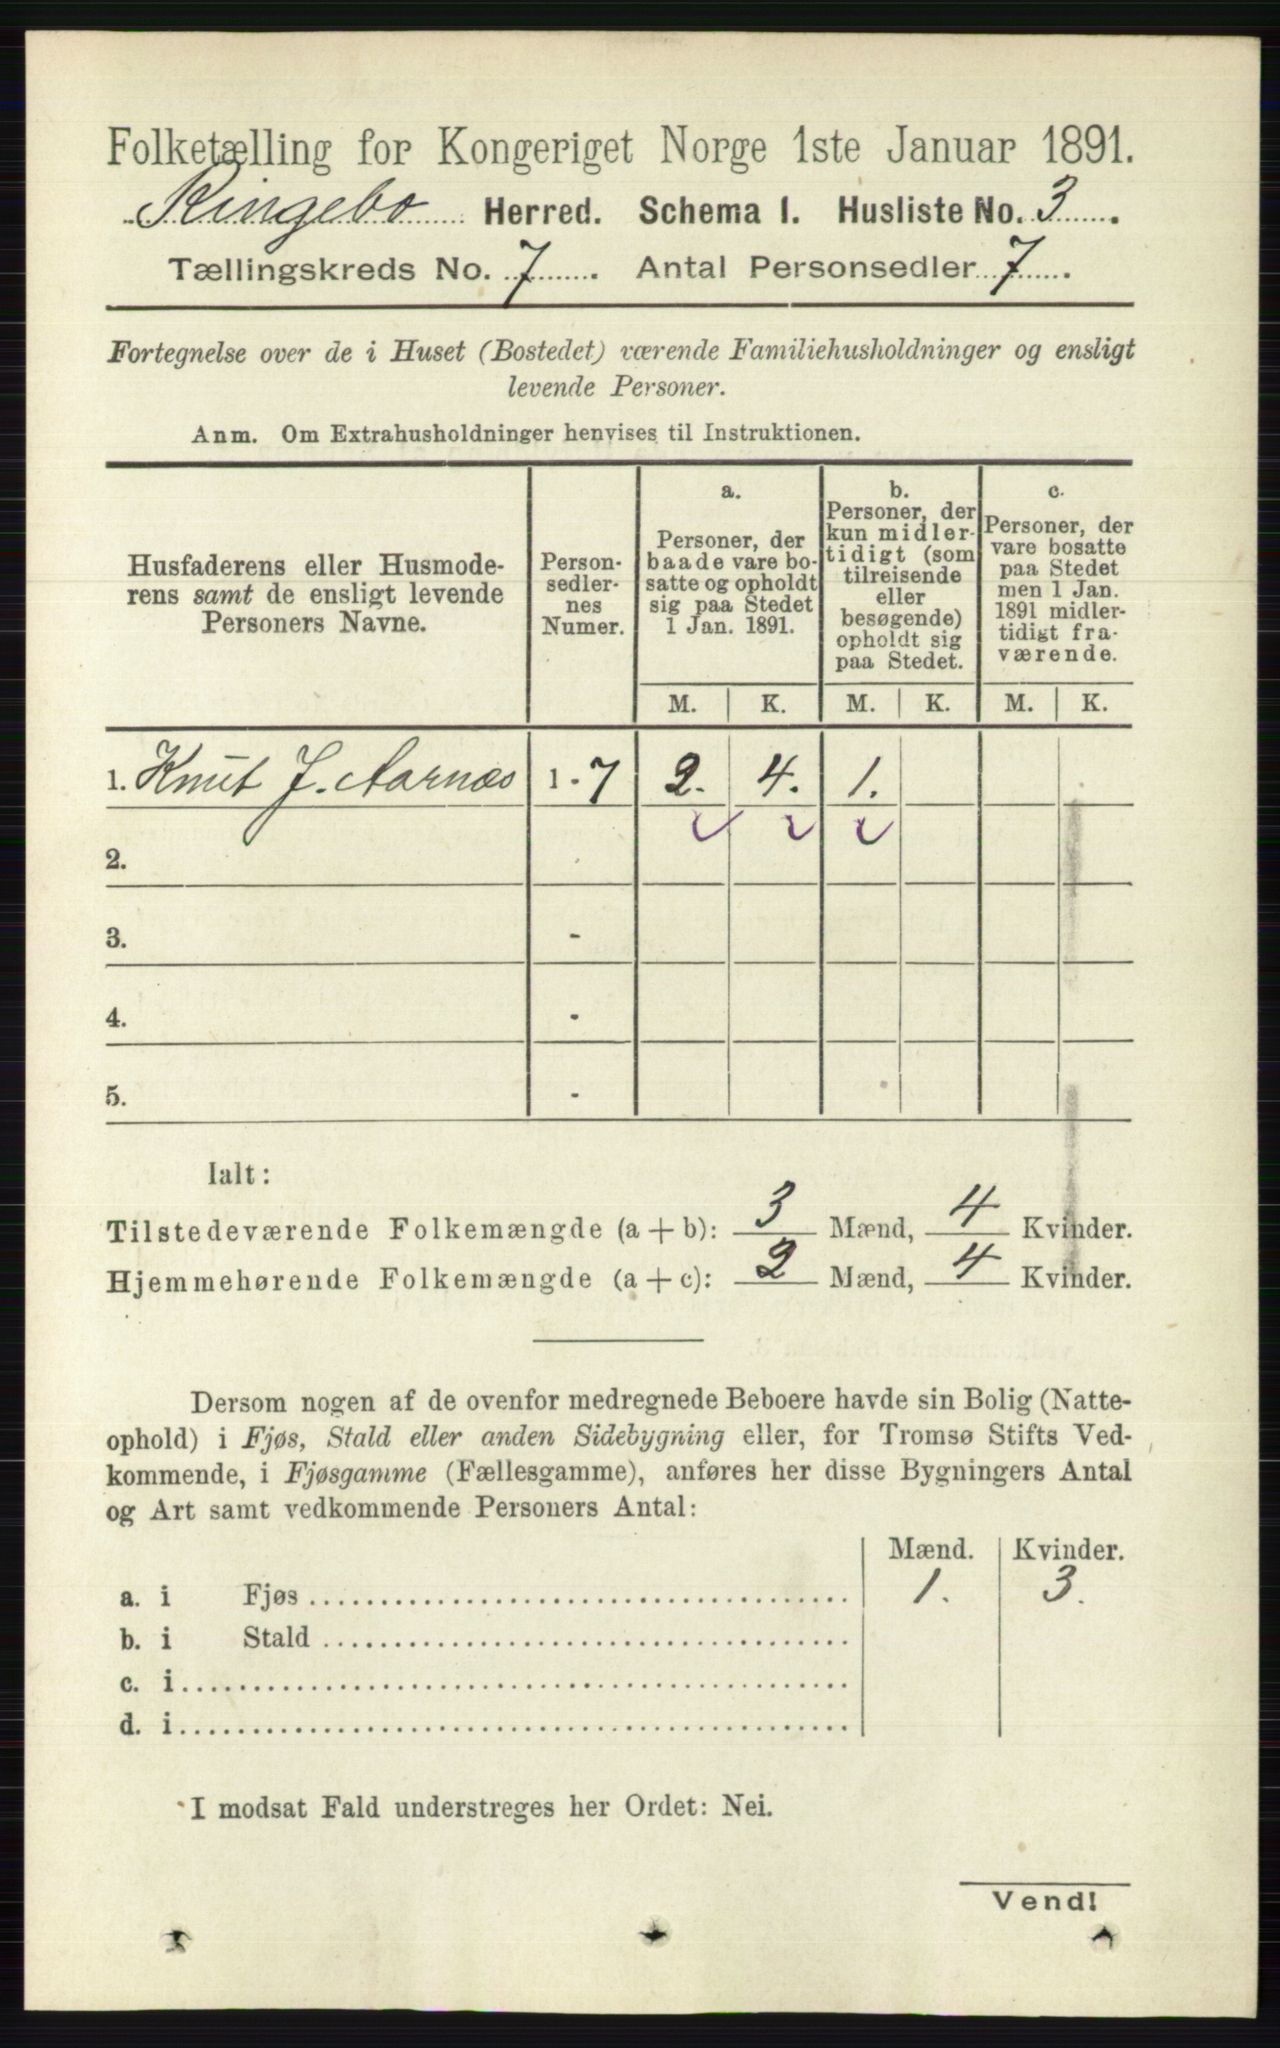 Folketælling for Kongeriget Norge 1ste Januar 1891.
Ringebo Herred. Schema I. Husliste No. 3.
Tællingskreds No. 7. Antal Personsedler 7.
Fortegnelse over de i Huset (Bostedet) værende Familiehusholdninger og ensligt
levende Personer.
Anm. Om Extrahusholdninger henvises til Instruktionen.
Husfaderens eller Husmoderens samt de ensligt levende Personers Navne.
Personsedlernes Numer.
a.
Personer, der
baade vare bo-
satte og opholdt
sig paa Stedet
1 Jan. 1891.
b.
Personer, der
kun midler-
tidigt (som
tilreisende
eller
besøgende)
opholdt sig
paa Stedet.
c.
Personer, der
vare bosatte
paa Stedet
men 1 Jan.
1891 midler-
tidigt fra-
værende.
M. K. M. K. M. K.
1. Knut J. Aarnæs 1-7 2. 4. 1.
2.
3. -
4. -
5. -
Ialt:
Tilstedeværende Folkemængde (a + b): 3 Mænd, 4 Kvinder.
Hjemmehørende Folkemængde (a + c): 2 Mænd, 4 Kvinder.
Dersom nogen af de ovenfor medregnede Beboere havde sin Bolig (Natte-
ophold) i Fjøs, Stald eller anden Sidebygning eller, for Tromsø Stifts Ved-
kommende, i Fjøsgamme (Fællesgamme), anføres her disse Bygningers Antal
og Art samt vedkommende Personers Antal:
Mænd. Kvinder.
a. i Fjøs 1. 3.
b. i Stald
c. i
d. i
I modsat Fald understreges her Ordet: Nei.
Vend!